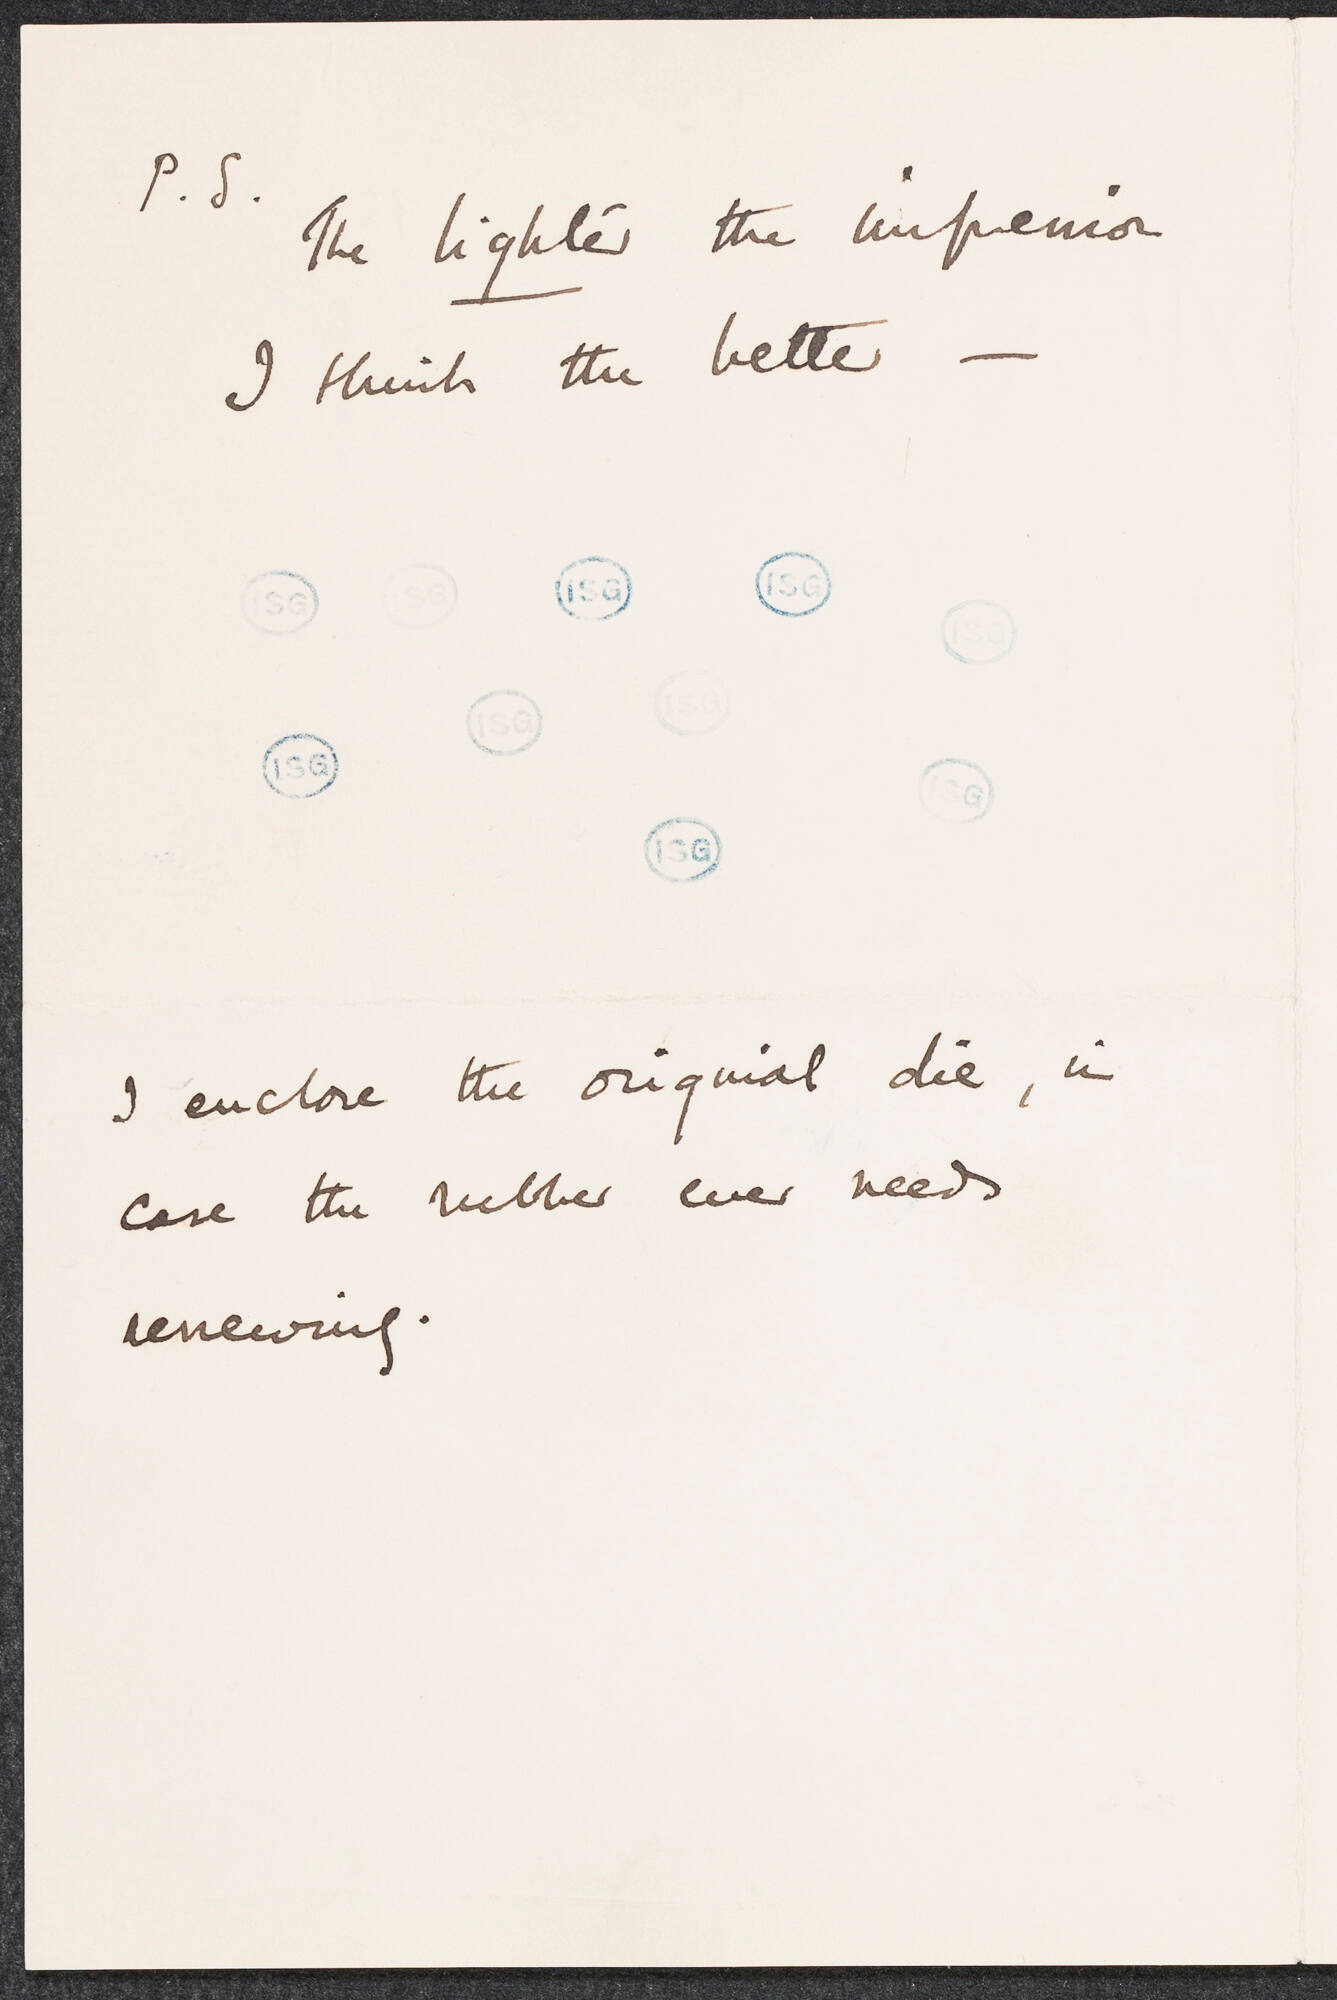 P.S.
The lighter the impression
I think the better —
ISG ISG ISG ISG ISG
ISG ISG ISG ISG
ISG
I enclose the original die, in
case the rubber ever needs
renewing.